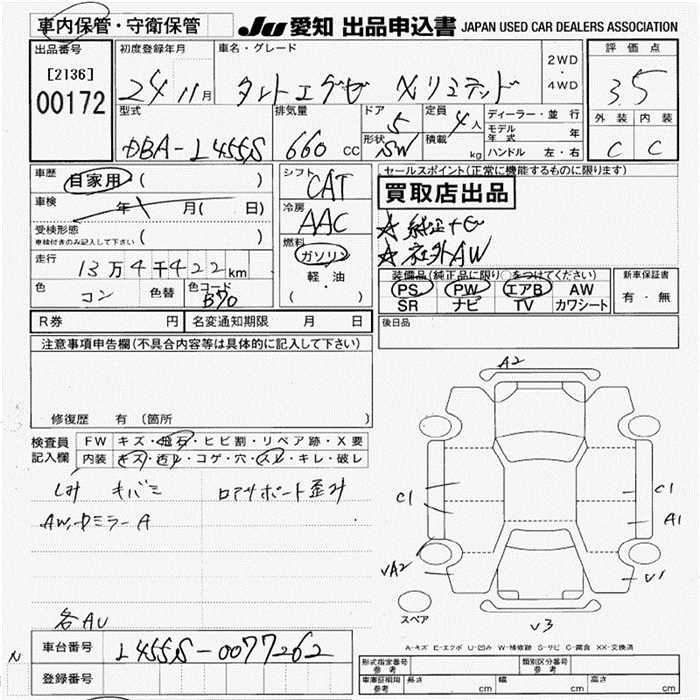 車内保管・守衛保管 JU 愛知 出品申込書 JAPAN USED CAR DEALERS ASSOCIATION
出品番号 初度登録年月 車名・グレード 2WD・4WD 評価点
[2136] 24 11月 タントエグゼ Xリミテッド 3.5
00172
型式 排気量 ドア 定員 ディーラー・並行 外装 内装
5 4人 モデル年式 年
DBA-L455S 660 CC 形状 SW 積載 kg ハンドル 左・右 C C
車歴 自家用 ( ) シフト CAT セールスポイント(正常に機能するものに限ります)
買取店出品
車検 年 月( 日) 冷房 AAC
☆純正ナビ
受検形態 車検付きのみ記入して下さい ( ) 燃料 ☆社外AW
走行 13万4千422km ガソリン 軽・油 装備品(純正品に限り○をつけてください) 新車保証書
色 コン 色替 色コード B70 PS PW エアB AW 有・無
SR ナビ TV カワシート
R券 円 名変通知期限 月 日 後日品
注意事項申告欄(不具合内容等は具体的に記入して下さい)
A2
修復歴 有 (箇所
検査員 FW キズ・飛石・ヒビ割・リペア跡・X要
記入欄 内装 キズ・汚レ・コゲ・穴・スレ・キレ・破レ
シミ キバミ ロアサポート歪み
C1 C1
AW,ドミラーA A1
VA2 V1
スペア
各AU V3
A-キズ E-エクボ U-凹み W-補修跡 S-サビ C-腐食 XX-交換済
N 車台番号 L455S-0077262
形式指定番号 参考 類別区分番号 参考
登録番号 車庫証明用 参考 長さ cm 幅 cm 高さ cm